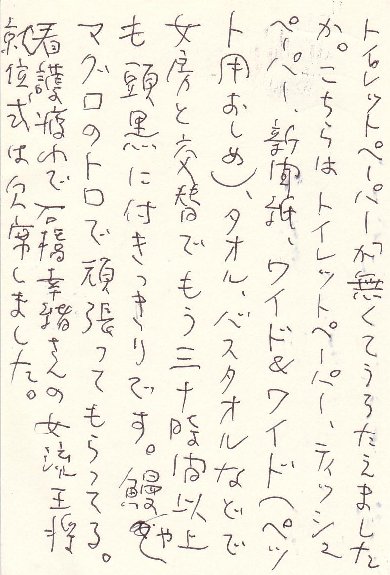 トイレットペーパーが無くてうろたえました
か。こちらはトイレットペーパー、ティッシュ
ペーパー、新聞紙、ワイド&ワイド(ペッ
ト用おしめ)、タオル、バスタオルなどで
女房と交替でもう三十時間以上
も頭黒に付きっきりです。鰻や
マグロのトロで頑張ってもらってる。
看護疲れで石橋幸緒さんの女流王将
就位式は欠席しました。